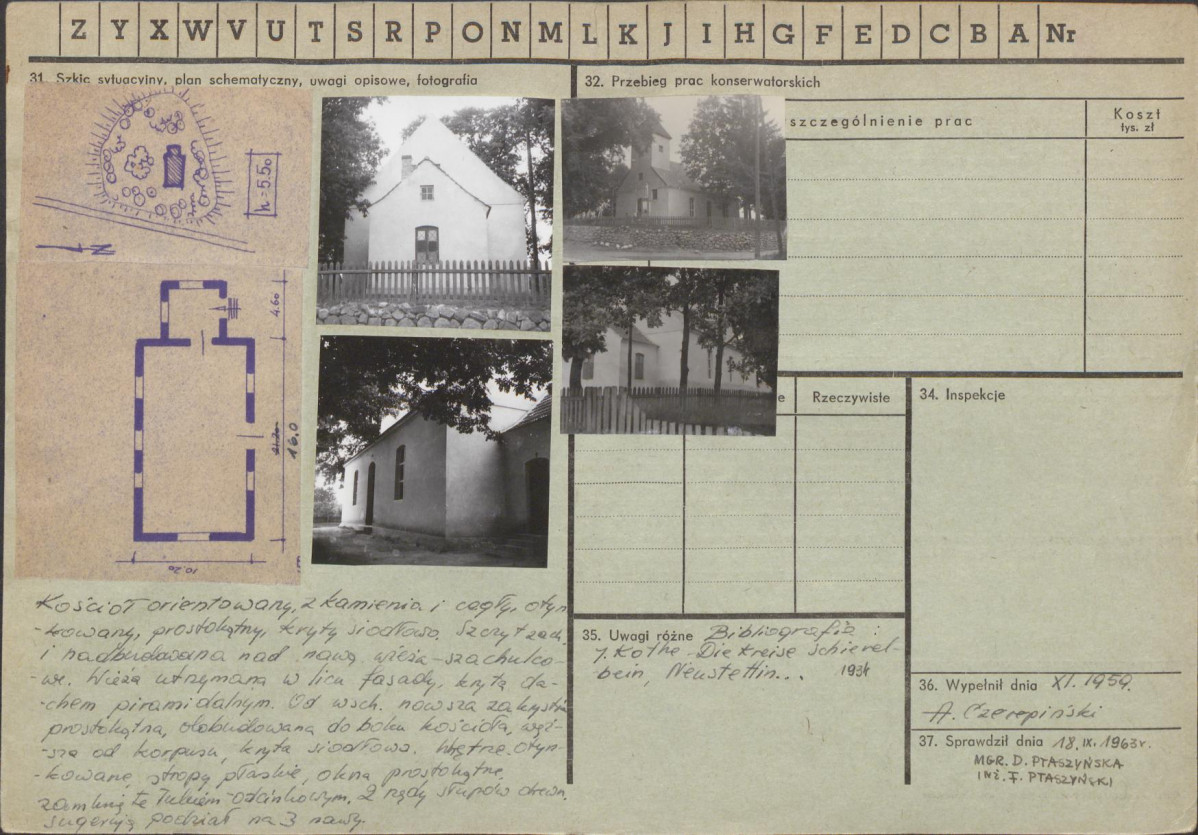 Z Y X W V U T S R P O N M L K J I H G F E D C B A Nr
31. Szkic sytuacyjny, plan schematyczny, uwagi opisowe, fotografia
h=5.50
N
4.60
21.20
16.0
10.20
Kościół orientowany, z kamienia i cegły, otyn
-kowany, prostokątny, kryty siodłowo. Szczyt zach.
i nadbudowana nad nawą wieża - szachulco-
-we. Wieża utrzymana w licu fasady, kryta da-
-chem piramidalnym. Od wsch. nowsza zakystia
prostokątna, dobudowana do boku kościoła, węż-
-sza od korpusu, kryta siodłowo. Wnętrze otyn-
-kowane, stropy płaskie, okna prostokątne,
zamknięte łukiem odcinkowym. 2 rzędy słupów drewn.
sugerują podział na 3 nawy.
32. Przebieg prac konserwatorskich
szczególnienie prac
Koszt
tys. zł
e
Rzeczywiste
34. Inspekcje
35. Uwagi różne Bibliografia :
1. Kothe - Die Kreise Schievel-
-bein, Neustettin... 1934
36. Wypełnił dnia XI. 1959.
A. Czerepiński
37. Sprawdził dnia 18.IX.1963r.
MGR. D. PTASZYŃSKA
INŻ. F. PTASZYŃSKI